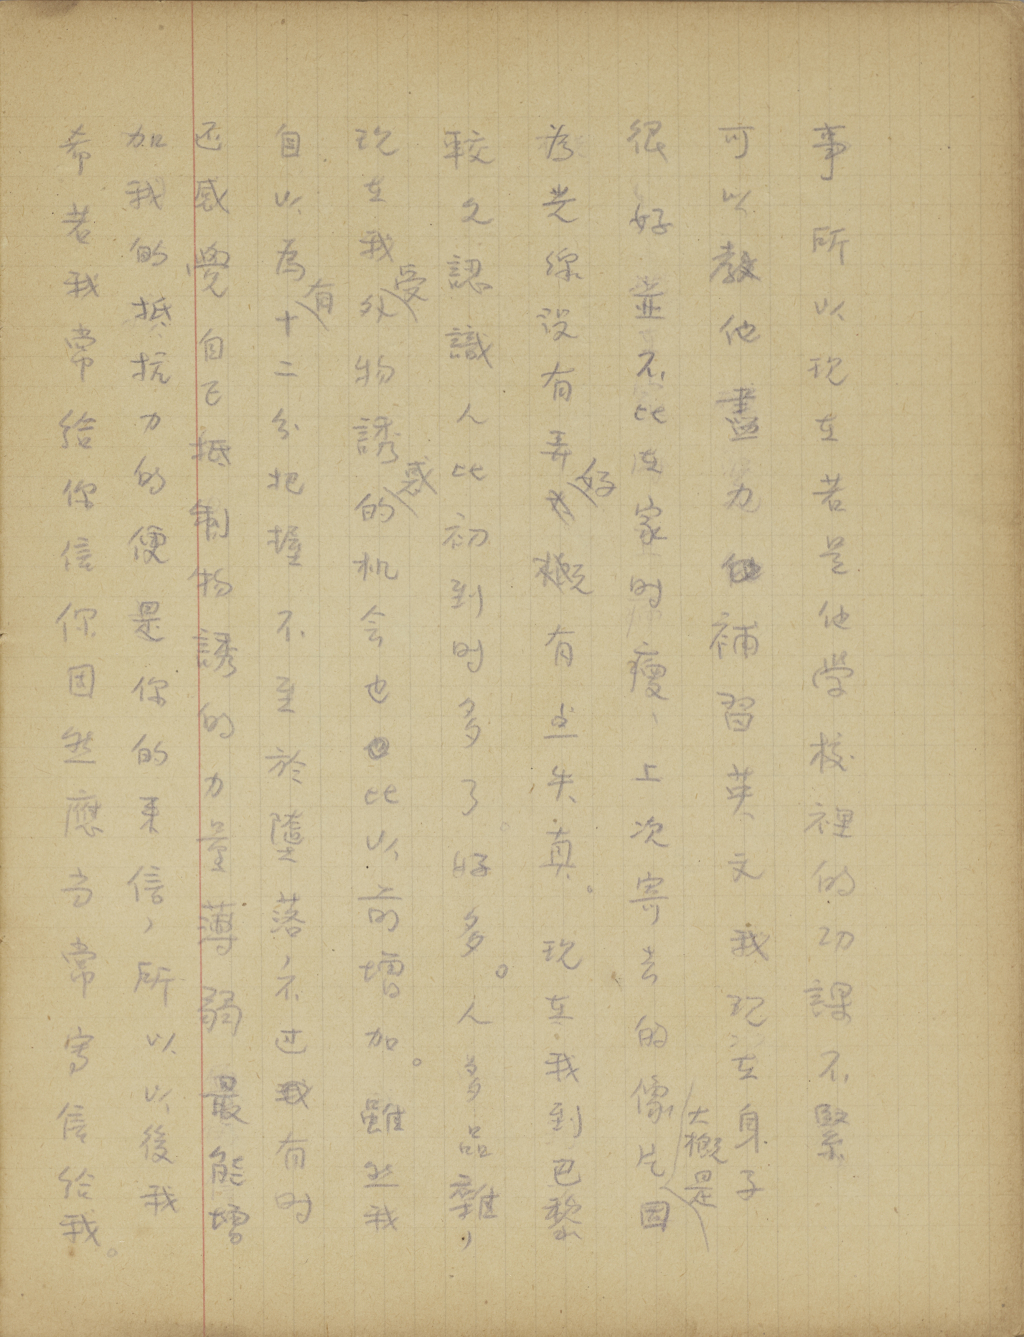 事所以現在若是他学校裡的功課不緊
可以教他盡力補習英文我現在身子
很好並不比在家时瘦、上次寄去的像片大概是因
為光線沒有弄好概有些失真。現在我到巴黎
較久認識人比初到时多了好多。人多品雜，
現在我受外物誘惑的机会也比以前增加。雖然我
自以為有十二分把握不至於墮落，不过我有时
还感覺自己抵制物誘的力量薄弱最能增
加我的抵抗力的便是你的来信，所以以後我
希若我常给你信你因然應当常寫信给我。